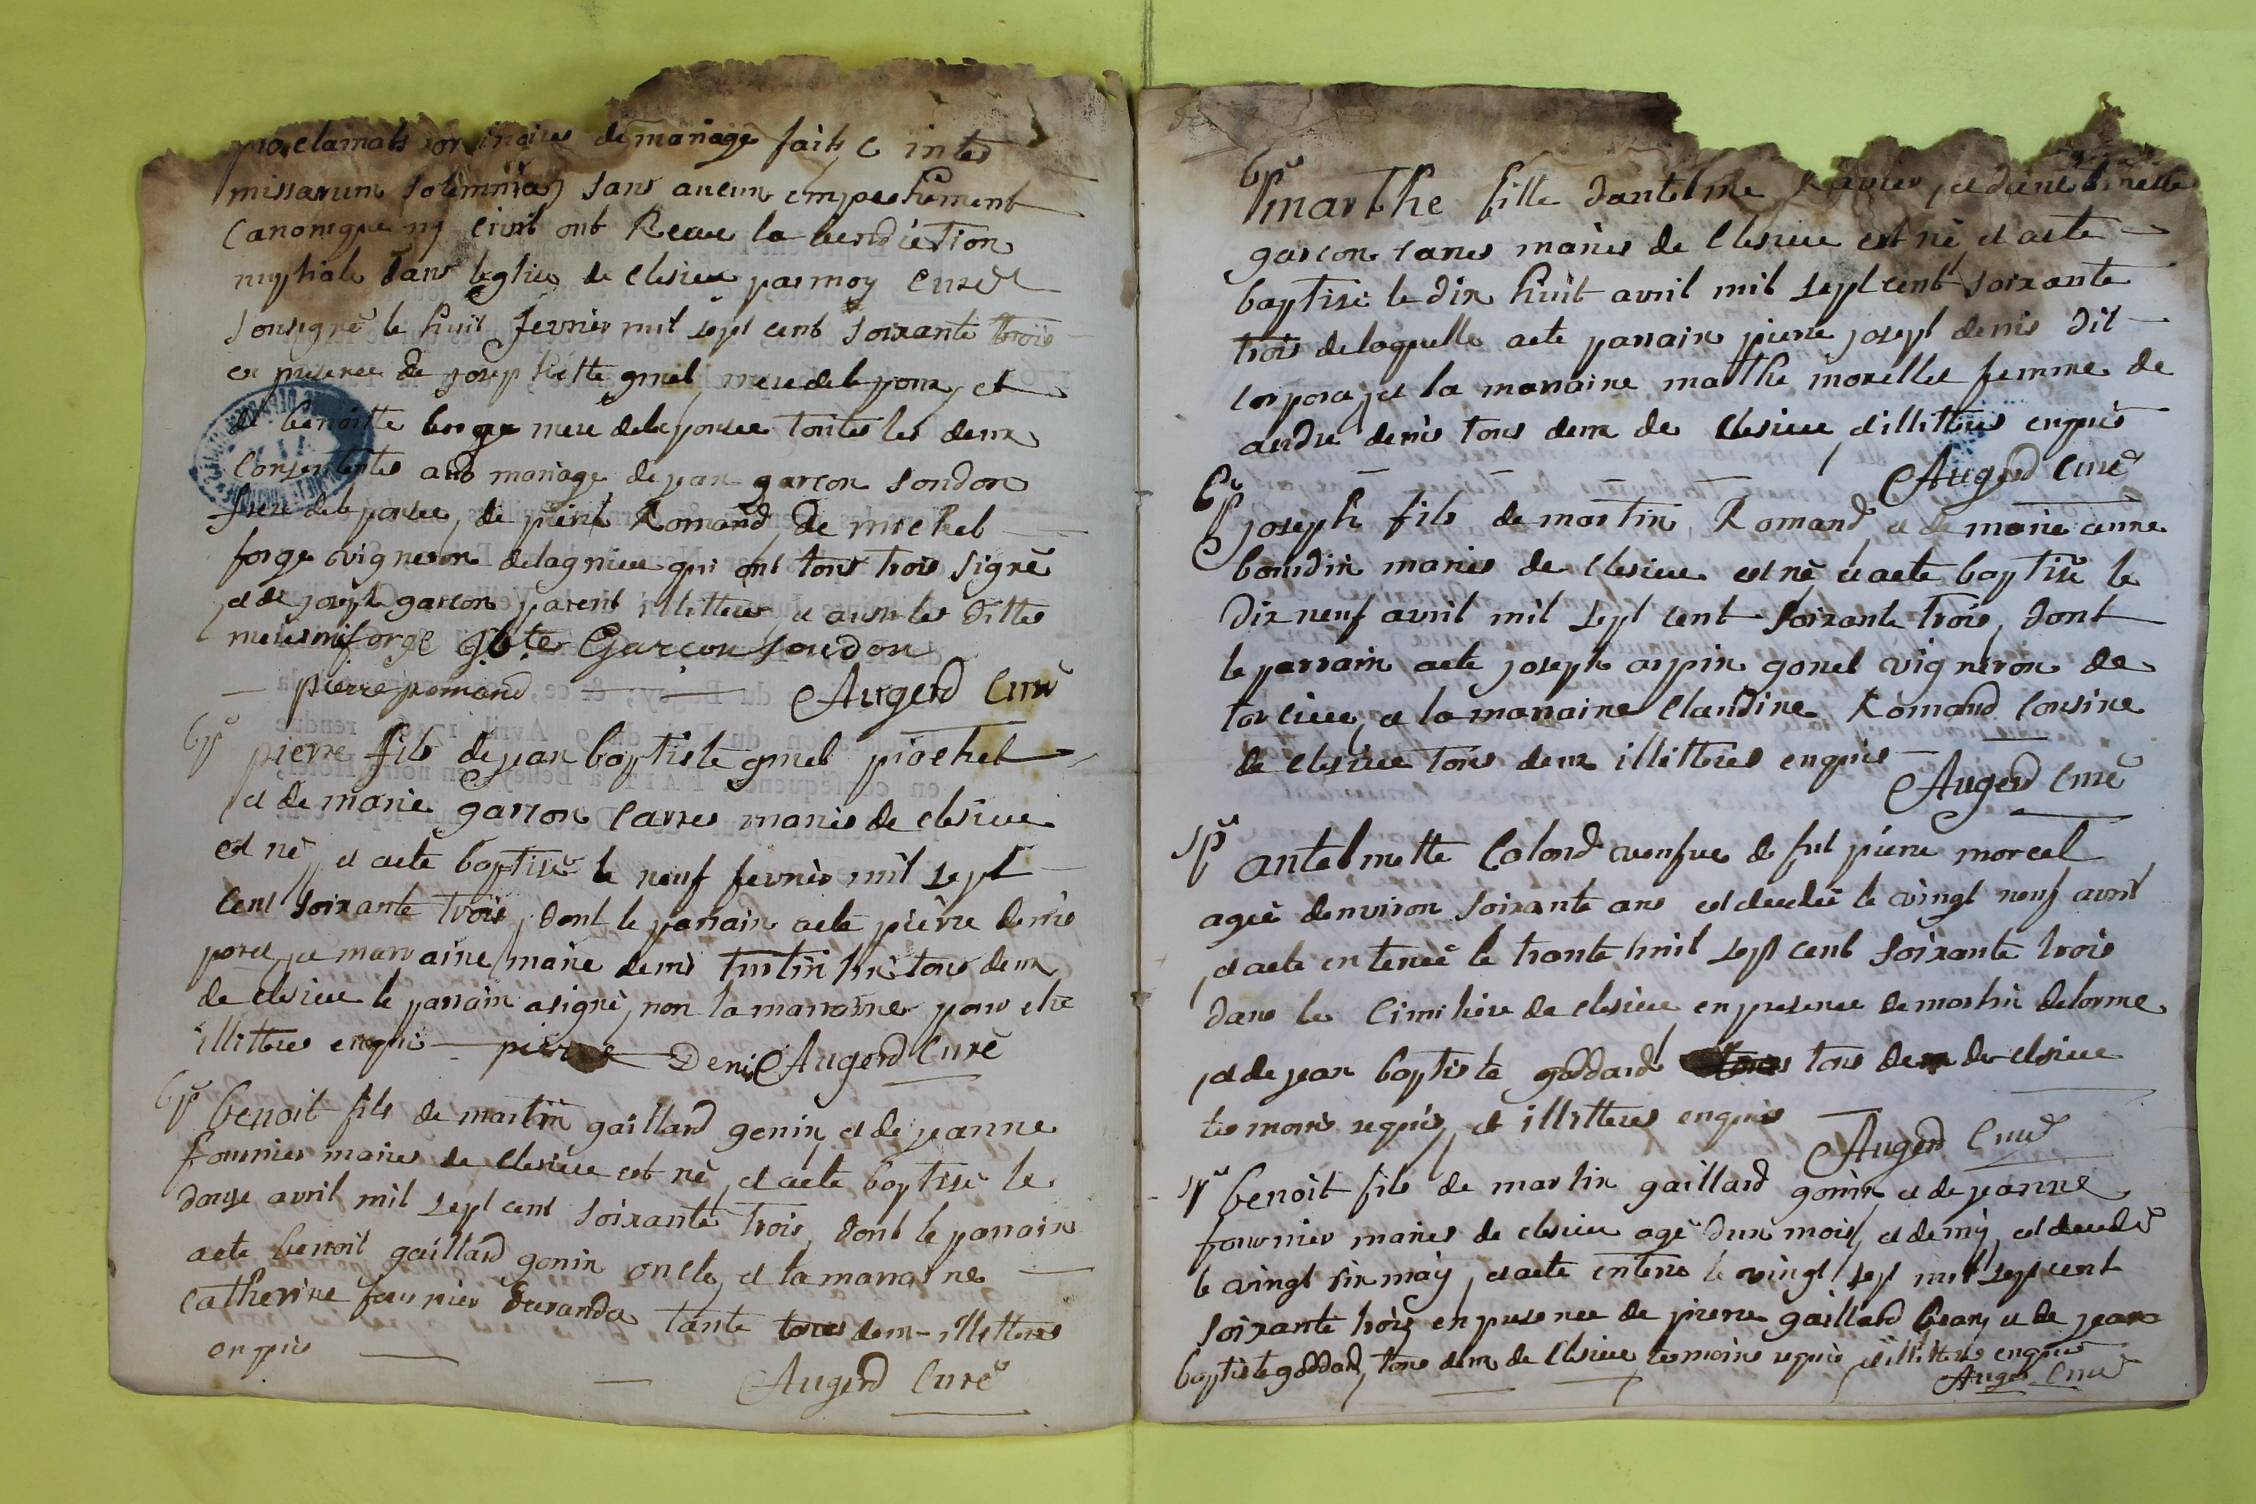 proclamats ordinaires de mariage faits inter
missarum solemnia, sans aucun empechement
canonique ny civil ont Receu la benediction
nuptiale dans leglise de clesieu par moy curé
sousigné le huit fevrier mil sept cent soixante trois
en presence de josephette gonel mere de lepoux, et
de benoitte mere de lepousee toutes les deux
consentantes au mariage de jean garcon soudon
frere de lepousee, de pierre Romand, de michel
forge vigneron de lagnieu qui ont tous trois signé
et de joseph garcon parent illitterés et aussi les dittes
meres mi forge jbte Garcon soudon
pierre romand Augerd Curé
bp^e pierre fils de jean baptiste gonel piochel
et de marie garcon carres mariés de clesieu
est né, et aeté baptisé le neuf fevrier mil sept
cent soixante trois, dont le parrain aeté pierre denis
porel, la marraine marie denis tous deux
de clesieu le parrain a signé, non la marraine pour etre
illitteres enquis pierre Denis Augerd Curé
bp^e benoit fils de martin gaillard gonin, et de jeanne
fournier mariés de clesieu est né, et aeté baptisé le
douze avril mil sept cent soixante trois, dont le parrain
aeté benoit gaillard gonin oncle, et la marraine
catherine fournier tante tous deux illitterés
enquis
Augerd Curé
bp^e marthe fille dantelme Ravier, et
garcon canes mariés de clesieu est né, et aeté
baptisé le dix huit avril mil sept cent soixante
trois de laquelle aeté parrain pierre joseph denis dit
corpora, et la marraine marthe morellet femme de
andré denis tous deux de clesieu, et illitterés enquis
Augerd Curé
bp^e joseph fils de martin Romand, et de marie anne
boudin mariés de clesieu est né et aeté baptisé le
dix neuf avril mil sept cent soixante trois, dont
le parrain aeté joseph arpin gonel vigneron de
torcieu, et la marraine claudine Romand cousine
de clesieu tous deux illitterés enquis
Augerd Curé
sp^e antelmette Colond veufve de fut pierre morcel
ageé denviron soixante ans est decedeé le vingt neuf avril
et aeté enterreé le trante mil sept cent soixante trois
dans le cimitiere de clesieu en presence de martin delorme
et de jean baptiste goddard tous tous deux de clesieu
temoins requis, et illitterés enquis
Augerd Curé
sp^e benoit fils de martin gaillard gonin, et de jeanne
fournier mariés de clesieu agé dun mois, et demy, est decedé
le vingt six may, et aeté enterré le vingt sept mil sept cent
soixante trois en presence de pierre gaillard et de jean
baptiste goddard, tous deux de clesieu temoins requis et illitterés enquis
Augerd Curé